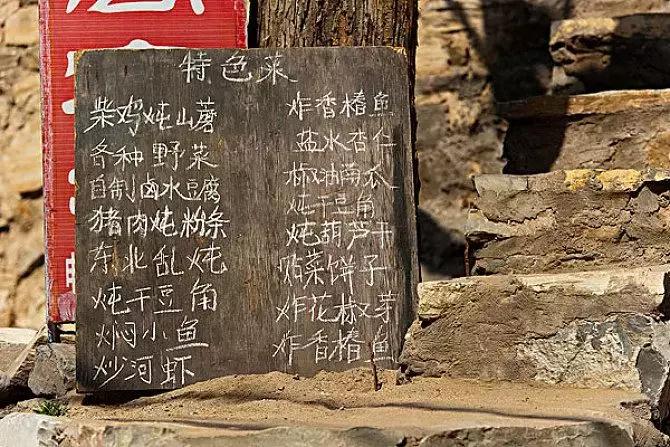 特色菜
柴鸡炖山蘑
各种野菜
自制卤水豆腐
猪肉炖粉条
东北乱炖
炖干豆角
焖小鱼
炒河虾
炸香椿鱼
盐水杏仁
炖干豆角
炖葫芦干
贴菜饼子
炸花椒芽
炸香椿鱼